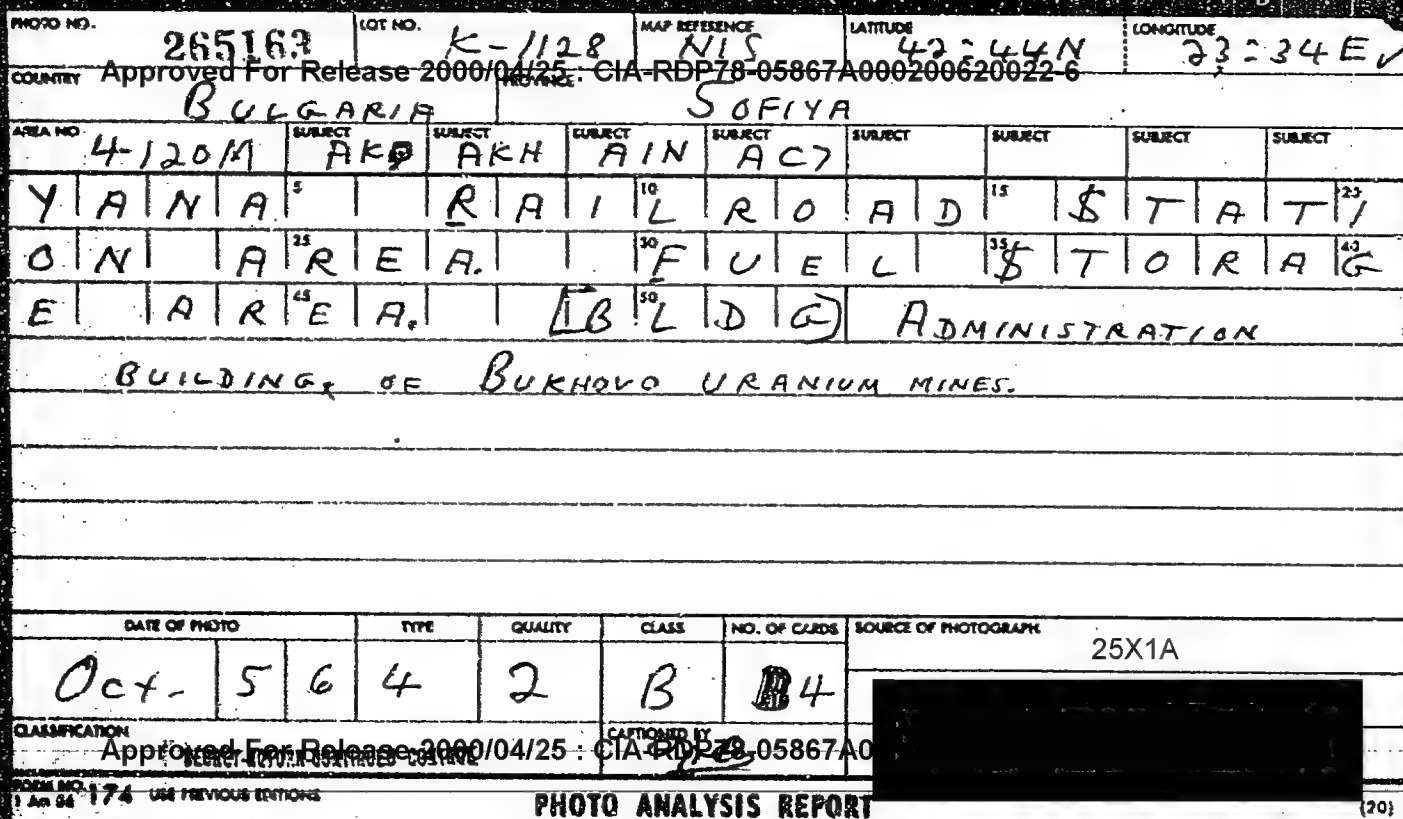 PHOTO NO. 265163 LOT NO. K-1128 MAP REFERENCE NIS LATITUDE 42:44N LONGITUDE 23:34E
Approved For Release 2000/04/25 : CIA-RDP78-05867A000200620022-6
COUNTRY BULGARIA PROVINCE SOFIYA
AREA NO. 4-120M SUBJECT AK SUBJECT AKH SUBJECT AIN SUBJECT AC7 SUBJECT SUBJECT SUBJECT SUBJECT
YANA 5 RAI 10 LROAD 15 $TAT 23 I
ON A 25 REA. 30 FUEL 35 $TORA 40 G
E AR 45 EA. [B 50 LDG) ADMINISTRATION
BUILDING, OF BUKHOVO URANIUM MINES.
DATE OF PHOTO TYPE QUALITY CLASS NO. OF CARDS SOURCE OF PHOTOGRAPH
25X1A
Oct- 5 6 4 2 B 4
CLASSIFICATION CAPTIONED BY
Approved For Release 2000/04/25 : CIA-RDP78-05867A0
FORM NO. 174 USE PREVIOUS EDITIONS
PHOTO ANALYSIS REPORT (20)